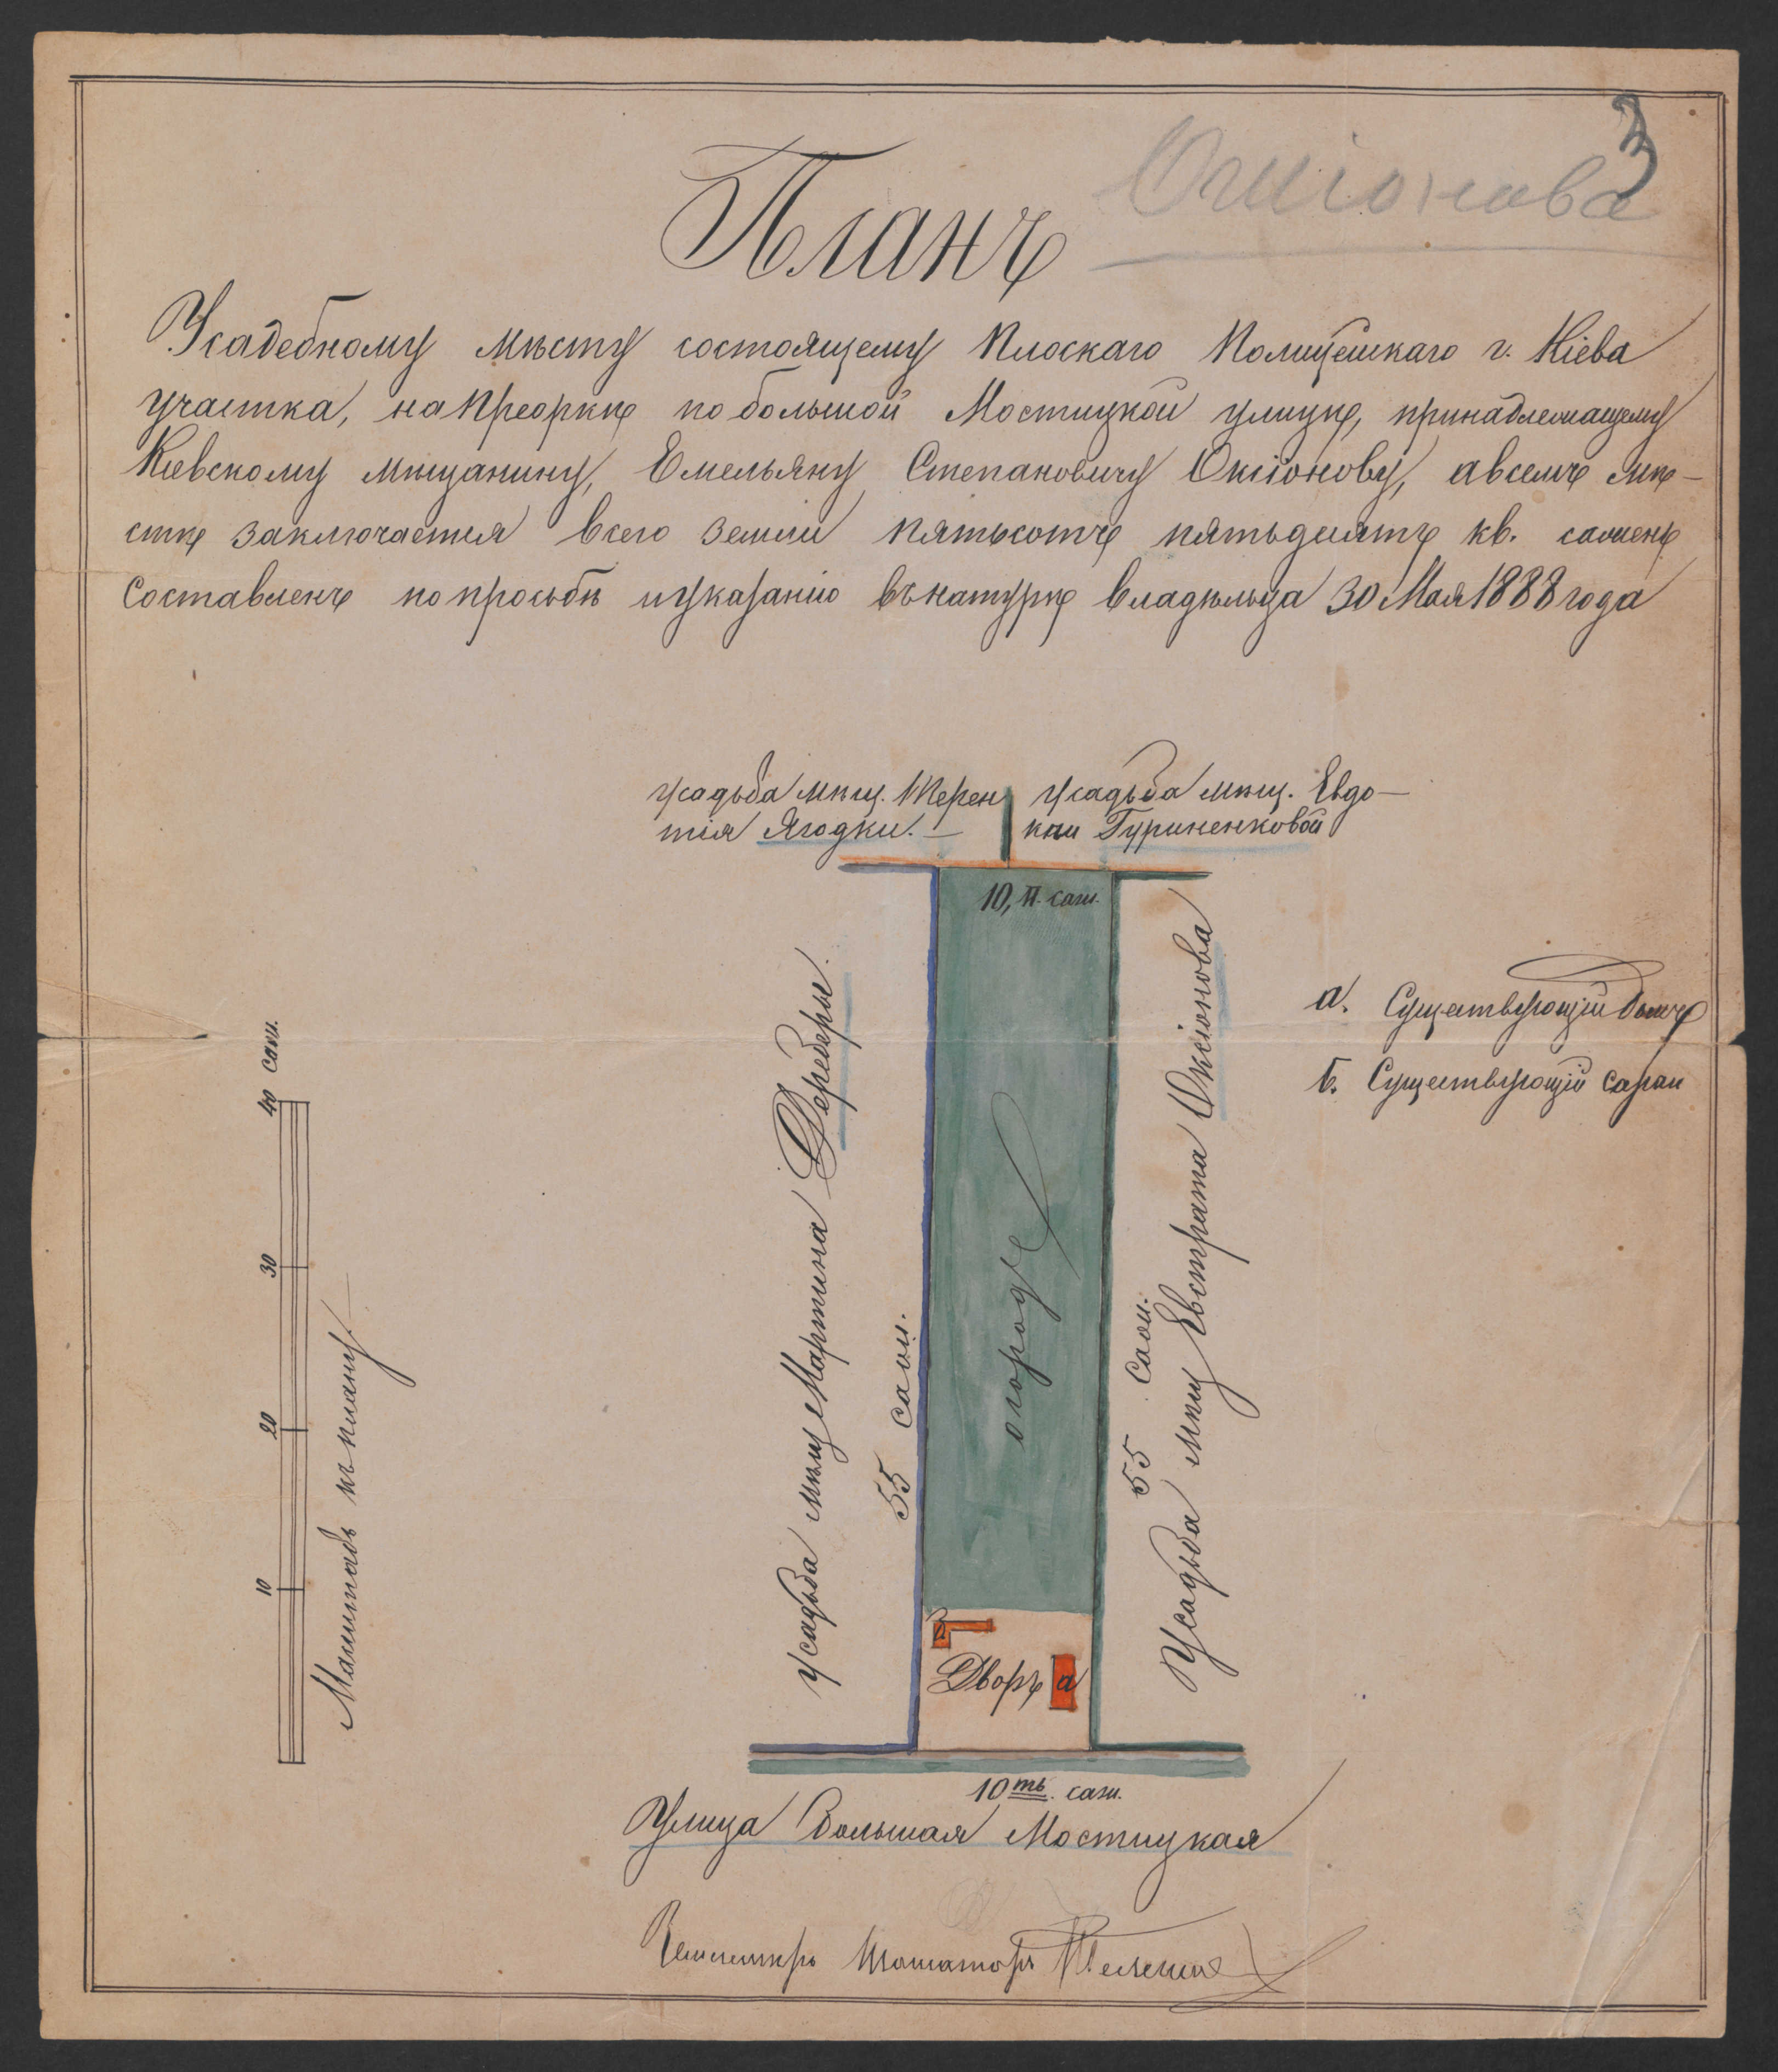 3
Оксіонова
Планъ
Усадебному мѣсту состоящему Плоскаго Полицейскаго г. Кіева
участка, на Преоркѣ по большой Мостицкой улицѣ, принадлежащему
Кіевскому мѣщанину, Емельяну Степановичу Оксіонову, а всемъ мѣ-
стѣ заключается всего земли пятьсотъ пятьдесятъ кв. сажень
Составленъ по просьбѣ и указанію въ натурѣ владѣльца 30 Мая 1888 года
усадьба мѣщ. Терен
тія Ягодки. —
усадьба мѣщ. Евдо—
кіи Гуриненковой
10, п. саж.
а. Существующій домъ
б. Существующій сараи
усадьба мѣщ Мартина Деребери.
55 саж.
огородъ
55 саж.
Усадьба мѣщ Евстрата Оксіонова
40 саж.
30
20
10
Масштабъ къ плану
Дворъ
а
10ть. саж.
Улица Большая Мостицкая